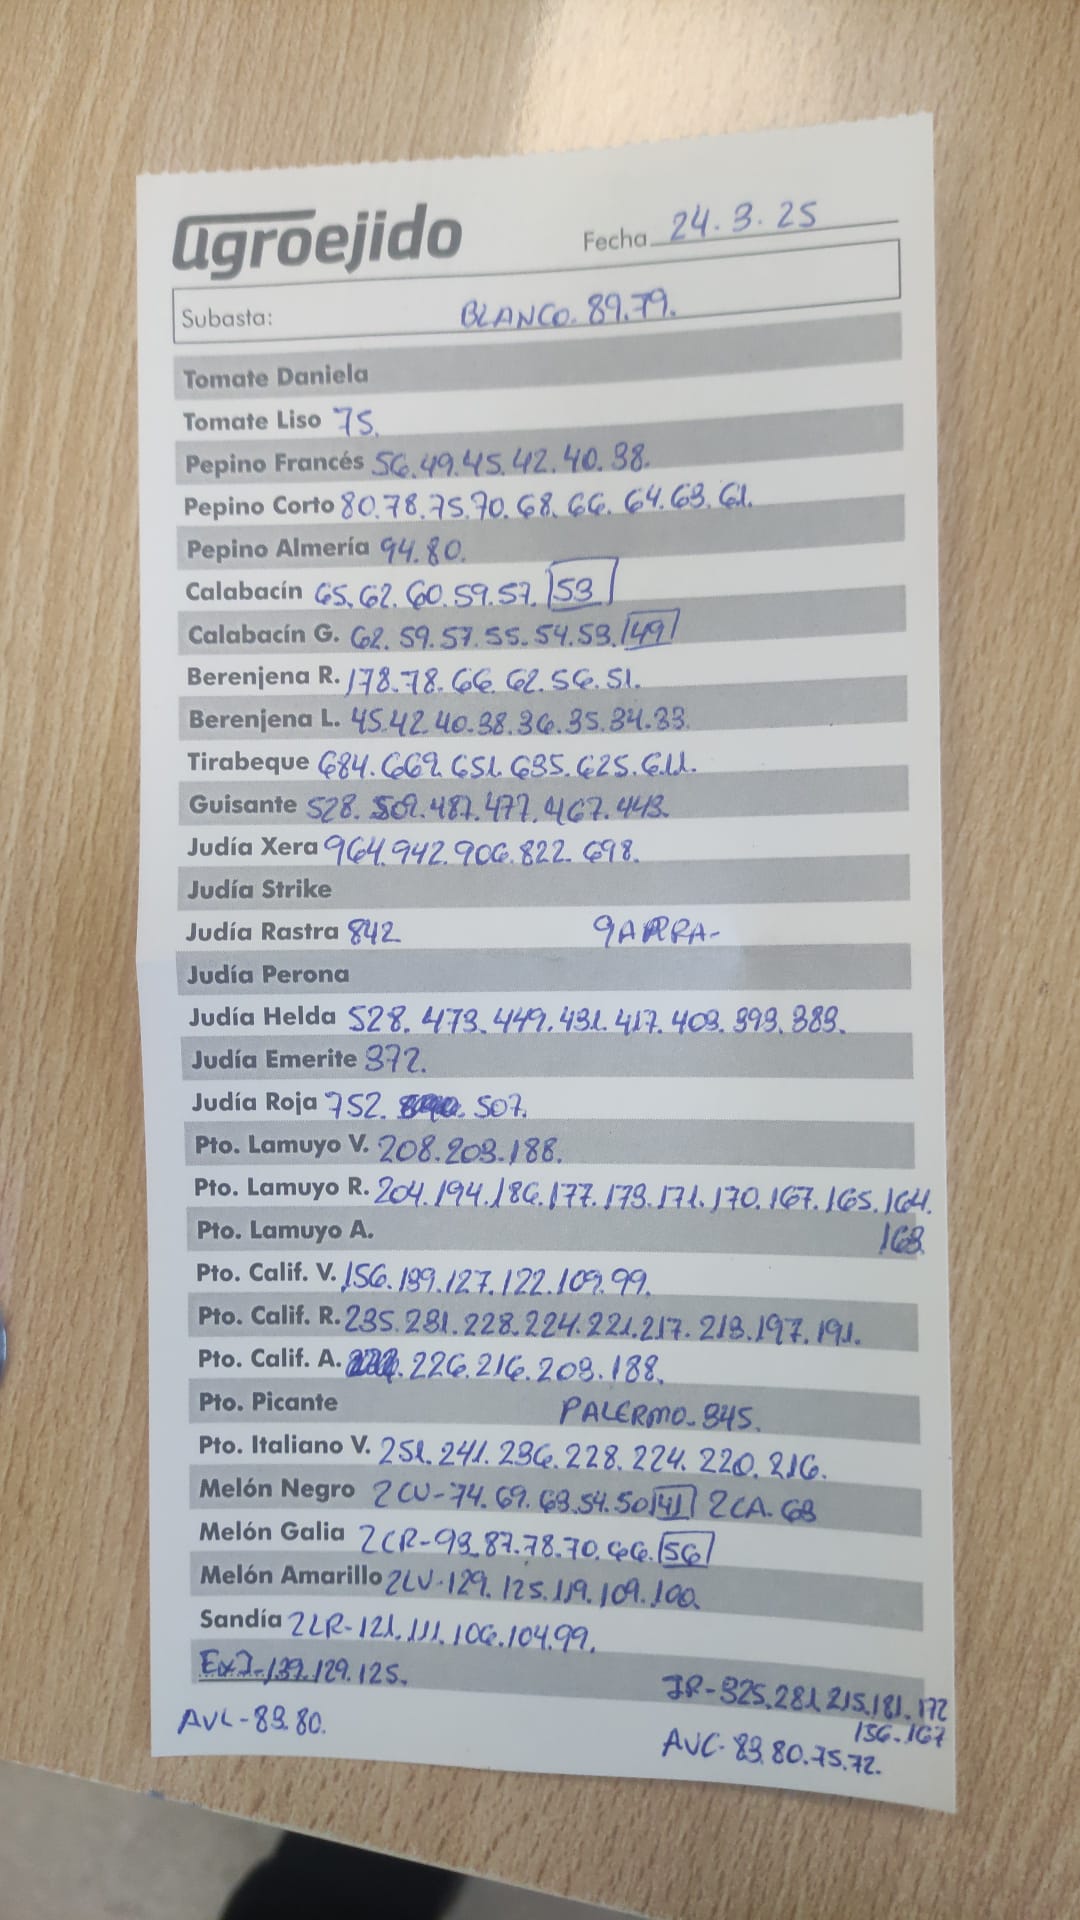 agroejido
Fecha 24.3.25
Subasta: BLANCO.89.79.
Tomate Daniela
Tomate Liso 75.
Pepino Francés 56.49.45.42.40.38.
Pepino Corto 80.78.75.70.68.66.64.63.61.
Pepino Almería 94.80.
Calabacín 65.62.60.59.57.53
Calabacín G. 62.59.57.55.54.53.49
Berenjena R. 178.78.66.62.56.51.
Berenjena L. 45.42.40.38.36.35.34.33.
Tirabeque 684.669.651.635.625.611.
Guisante 528.509.487.477.467.443.
Judía Xera 964.942.906.822.698.
Judía Strike
Judía Rastra 842 GARRA-
Judía Perona
Judía Helda 528.473.449.431.417.403.393.383.
Judía Emerite 372.
Judía Roja 752. 507.
Pto. Lamuyo V. 208.203.188.
Pto. Lamuyo R. 204.194.186.177.173.171.170.167.165.164.
Pto. Lamuyo A. 163.
Pto. Calif. V. 156.139.127.122.109.99.
Pto. Calif. R. 235.231.228.224.221.217.213.197.191.
Pto. Calif. A. 226.216.203.188.
Pto. Picante PALERMO-345.
Pto. Italiano V. 251.241.236.228.224.220.216.
Melón Negro 2CU-74.69.63.54.50 41 2CA.63
Melón Galia 2CR-93.87.78.70.66.56
Melón Amarillo 2LV-129.125.119.109.100.
Sandía 2LR-121.111.106.104.99.
ExJ-139.129.125. JR-325.281.215.181.172
156.167
AVL-83.80. AVC-83.80.75.72.